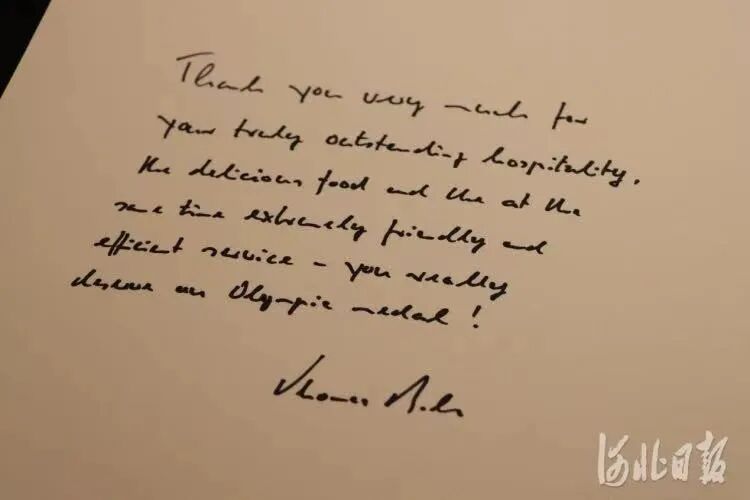 Thank you very much for
your truly outstanding hospitality,
the delicious food and the at the
same time extremely friendly and
efficient service – you really
deserve an Olympic medal!
Thomas
河北日报